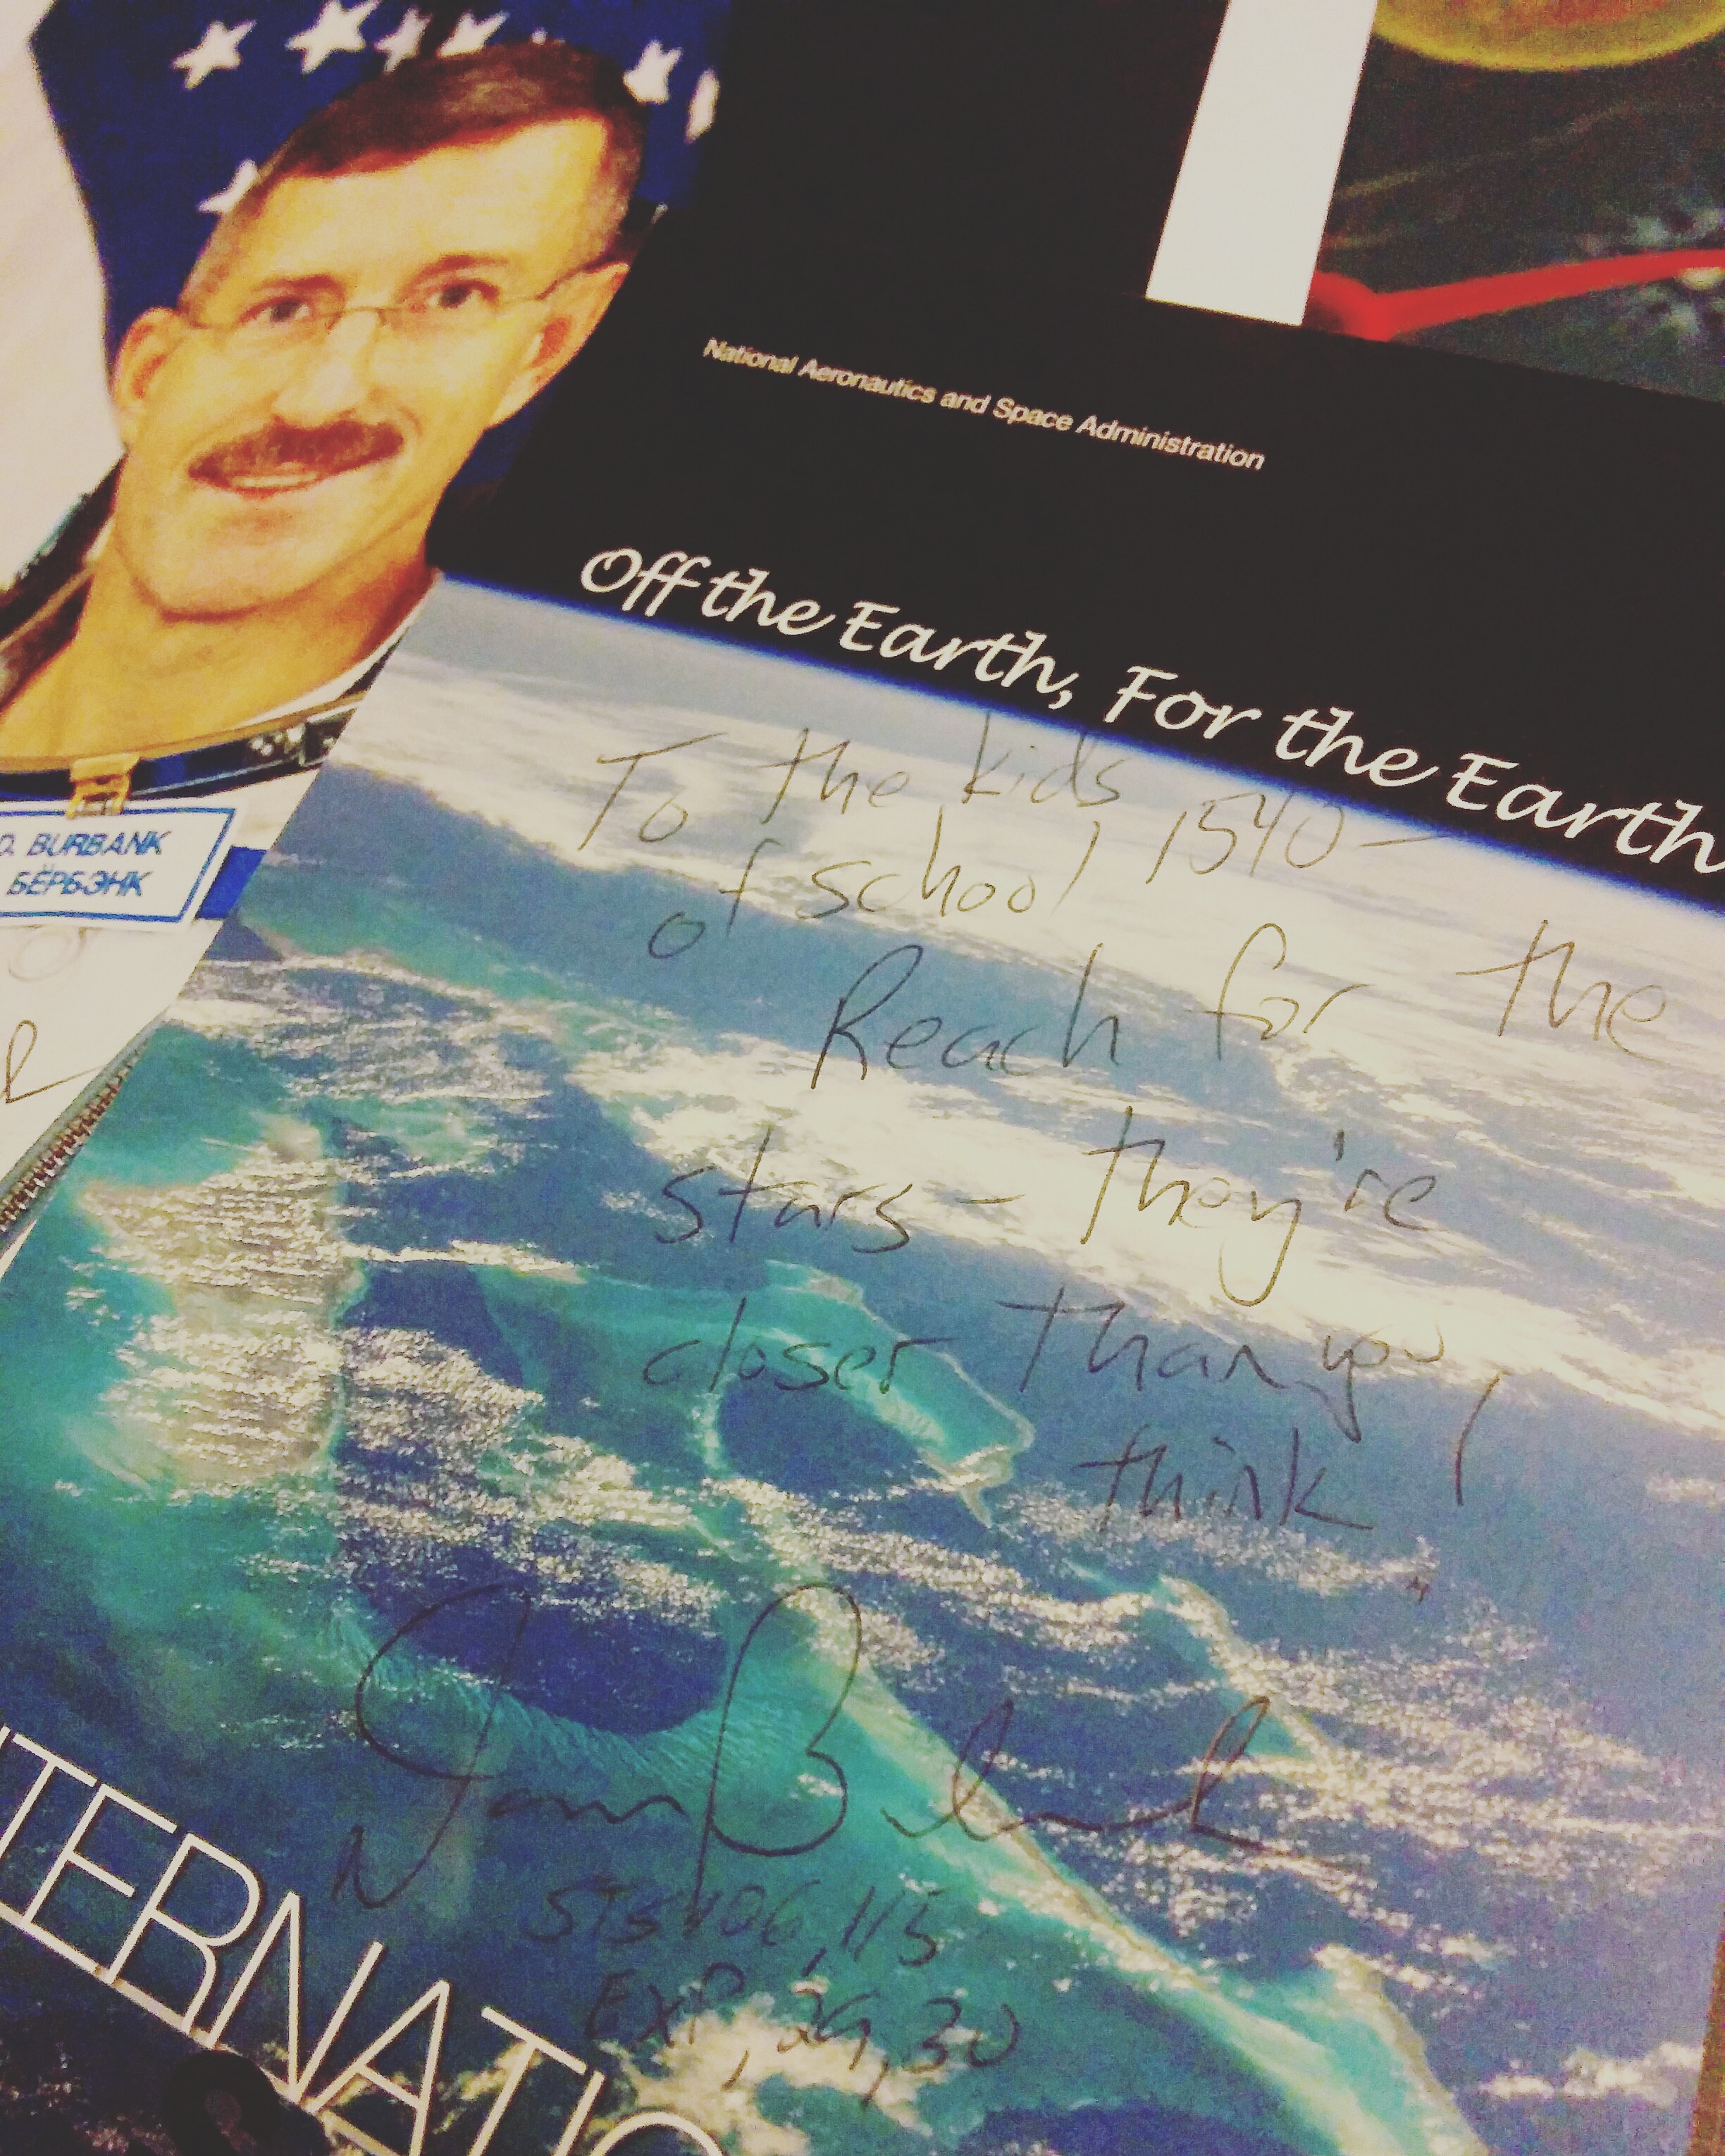 National Aeronautics and Space Administration
Off the Earth, For the Earth
D. BURBANK
БЁРБЭНК
To the kids
of school 1540 —
Reach for the
stars – they're
closer than you
think!
Dan Burbank
STS 106, 115
EXP, 29, 30
TERNATIO